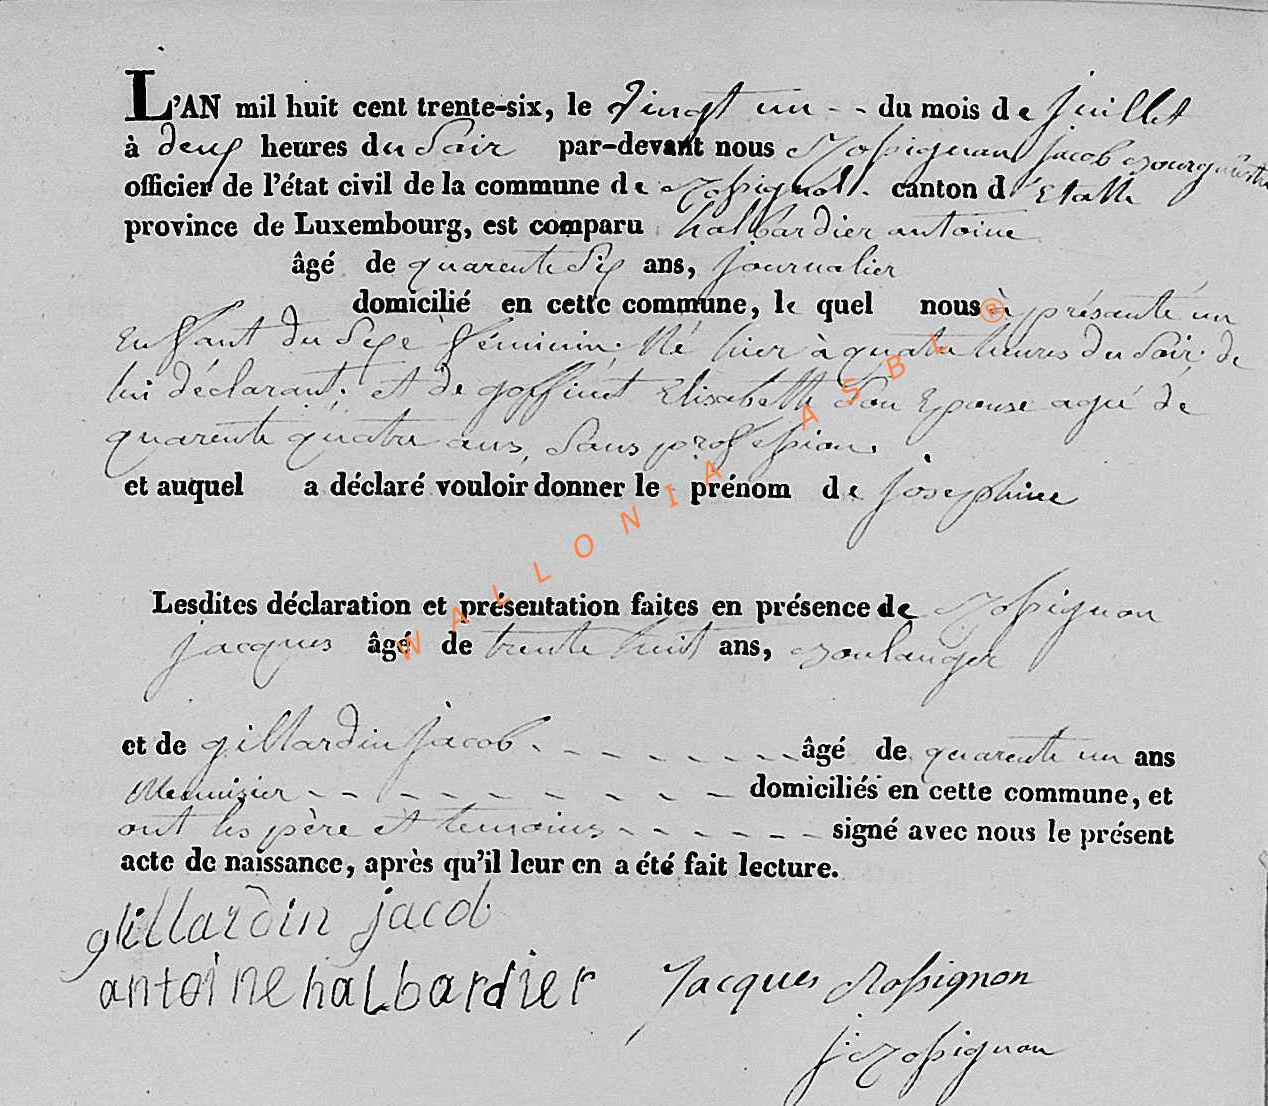 L'AN mil huit cent trente-six, le Vingt un -- du mois de juillet
à deux heures du Soir par-devant nous Rossignon jacob Bourgmestre
officier de l'état civil de la commune de Rossignol. canton d'Etalle
province de Luxembourg, est comparu halbardier antoine
âgé de quarente Six ans, journalier
domicilié en cette commune, le quel nous à présenté un
Enffant du Sexe féminin. Né hier à quatre heures du Soir; de
lui déclarant. et de goffinet Elisabette Son Epouse agée de
quarente quatre ans, Sans profession.
et auquel a déclaré vouloir donner le prénom de josephine
WALLONIA ASBL ®
Lesdites déclaration et présentation faites en présence de Rossignon
jacques âgé de trente huit ans, Boulanger
et de gillardin jacob. - - - - - - - âgé de quarente un ans
Menuisier - - - - - - - - - domiciliés en cette commune, et
ont les père et temoins - - - - - - signé avec nous le présent
acte de naissance, après qu'il leur en a été fait lecture.
gillardin jacob
antoine halbardier Jacques Rossignon
j: Rossignon